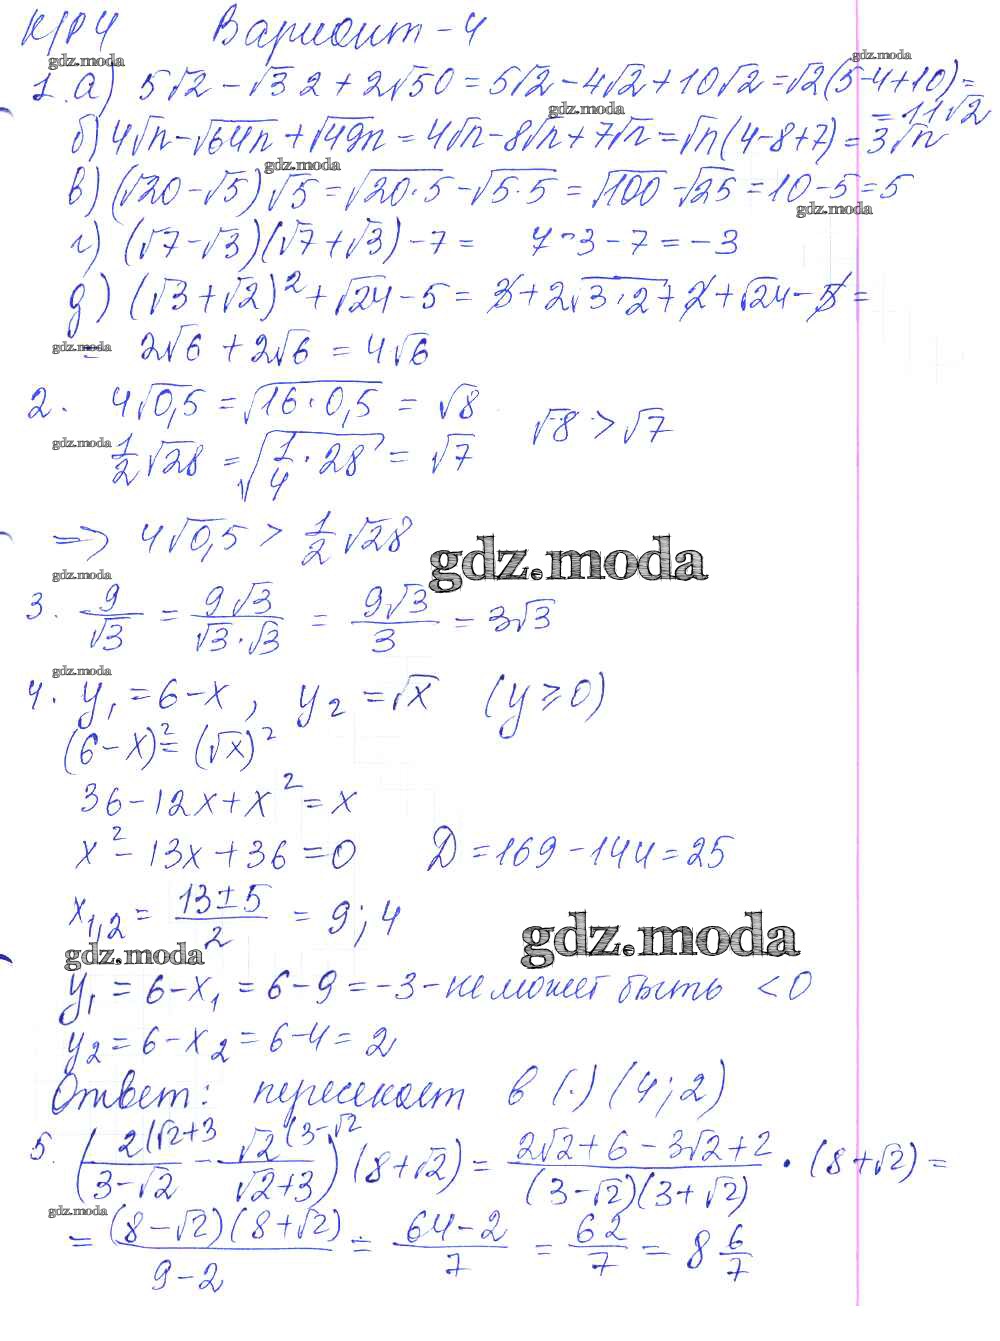 К/Р 4 Вариант - 4
gdz.moda gdz.moda
1. а) 5√2 - √32 + 2√50 = 5√2 - 4√2 + 10√2 = √2(5-4+10) =
gdz.moda = 11√2
б) 4√n - √64n + √49n = 4√n - 8√n + 7√n = √n(4-8+7) = 3√n
gdz.moda
в) (√20 - √5)√5 = √20·5 - √5·5 = √100 - √25 = 10 - 5 = 5
gdz.moda
г) (√7 - √3)(√7 + √3) - 7 = 7 - 3 - 7 = -3
д) (√3 + √2)² + √24 - 5 = 3 + 2√3·2 + 2 + √24 - 5 =
gdz.moda
= 2√6 + 2√6 = 4√6
2. 4√0,5 = √16·0,5 = √8 √8 > √7
gdz.moda
1/2 √28 = √1/4 · 28 = √7
=> 4√0,5 > 1/2 √28
gdz.moda
gdz.moda
3. 9/√3 = 9√3/√3·√3 = 9√3/3 = 3√3
gdz.moda
4. y₁ = 6 - x, y₂ = √x (y ≥ 0)
(6 - x)² = (√x)²
36 - 12x + x² = x
x² - 13x + 36 = 0 D = 169 - 144 = 25
x₁,₂ = 13 ± 5/2 = 9; 4
gdz.moda gdz.moda
y₁ = 6 - x₁ = 6 - 9 = -3 - не может быть < 0
y₂ = 6 - x₂ = 6 - 4 = 2
Ответ: пересекает в (·) (4; 2)
5. (2(√2+3/3-√2 - √2(3-√2/√2+3)(8+√2) = 2√2+6-3√2+2/(3-√2)(3+√2) · (8+√2) =
gdz.moda
= (8-√2)(8+√2)/9-2 = 64-2/7 = 62/7 = 8 6/7